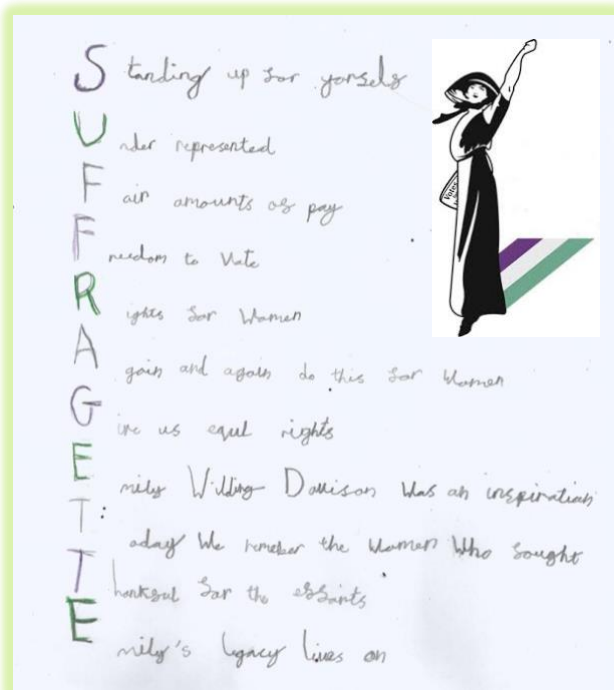 Standing up for yorself
Under represented
Fair amounts of pay
Freedom to Vote
Rights for Women
Again and again do this for Women
Give us equl rights
Emily Wilding Davison was an inspiration
Today We remeber the Women Who fought
Thankful for the efforts
Emily's legacy lives on
Votes